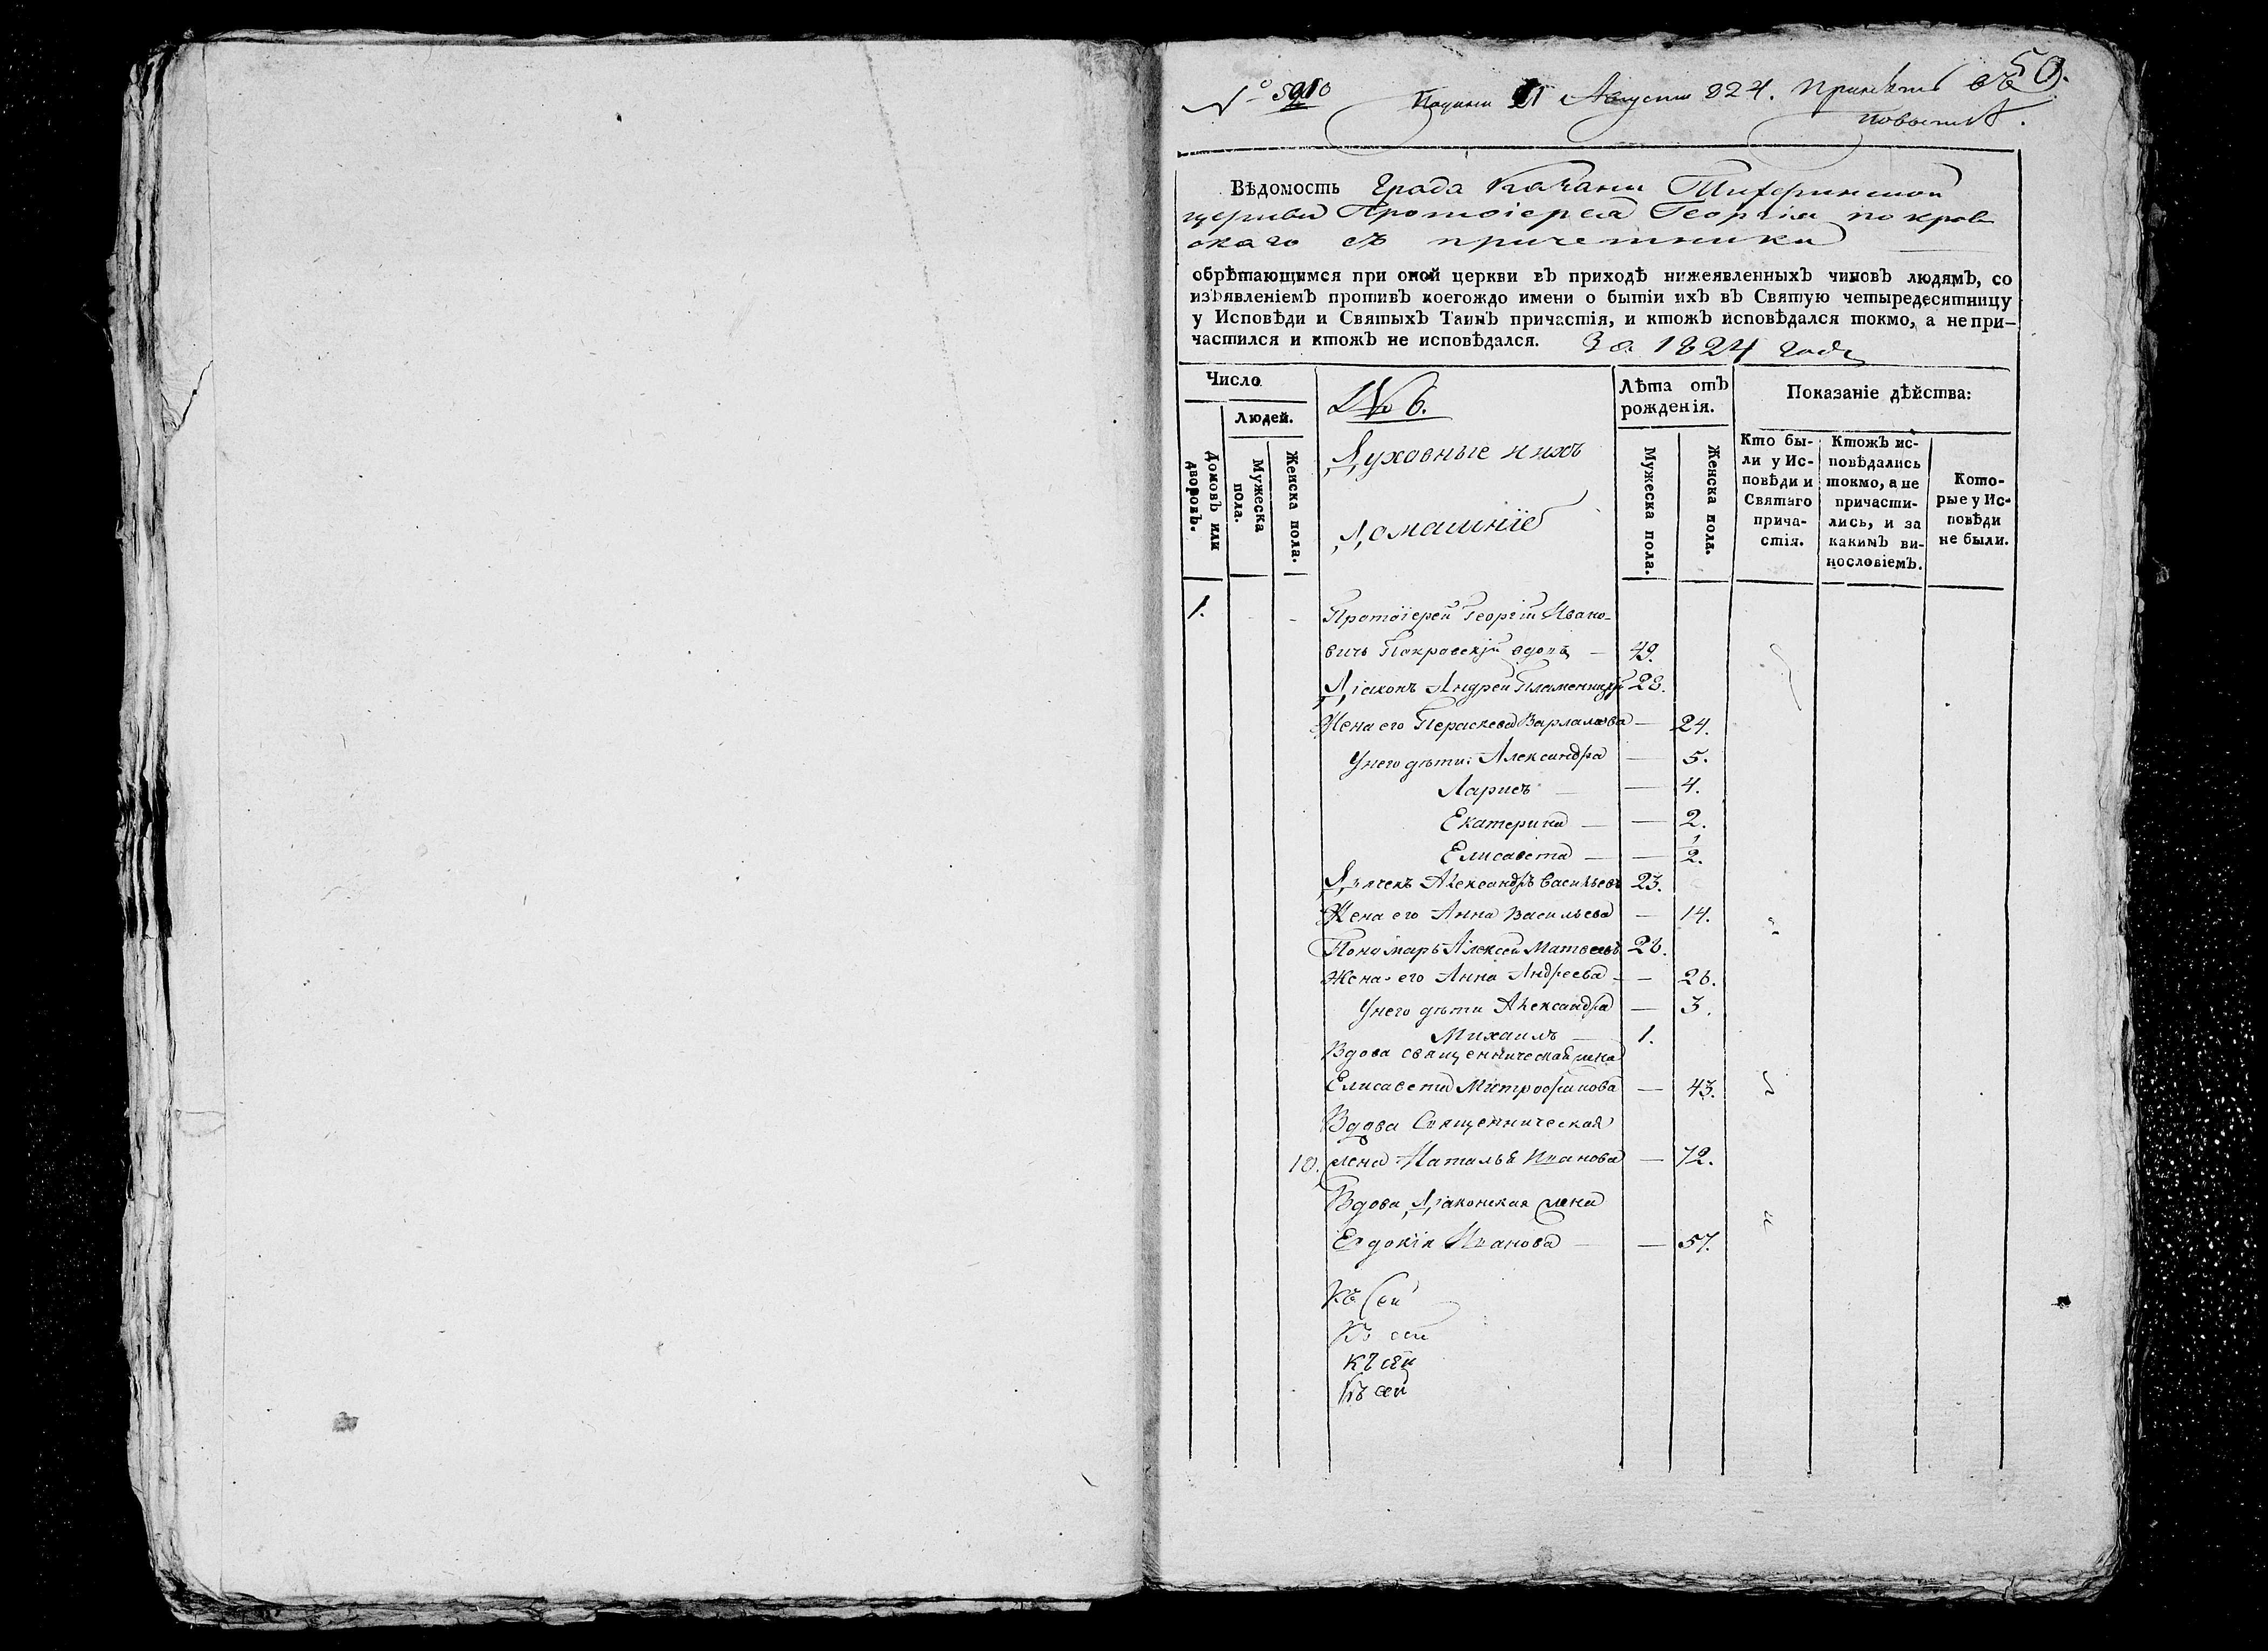 50.
№ 5910
Подана 21 Августа 824. Принять въ
повытье.
Вѣдомость Града Казани Тихвинской
церкви Протоіерея Георгія Покров
скаго съ причетники
обрѣтающимся при оной церкви въ приходѣ нижеявленныхъ чиновъ людямъ, со
изъявленіемъ противъ коегождо имени о бытіи ихъ въ Святую четыредесятницу
у Исповѣди и Святыхъ Таинъ причастія, и ктожъ исповѣдался токмо, а непри-
частился и ктожъ не исповѣдался. За 1824 годъ
Число
Людей.
Домовъ или дворовъ.
Мужеска пола.
Женска пола.
№ 6.
Духовные и ихъ
Домашніе
Лѣта отъ
рожденія.
Мужеска пола.
Женска пола.
Показаніе дѣйства:
Кто бы-
ли у Ис-
повѣди и
Святаго
прича-
стія.
Ктожъ ис-
повѣдались
токмо, а не
причасти-
лись, и за
какимъ ви-
нословіемъ.
Кото-
рые у Ис-
повѣди
не были.
1. Протоіерей Георгій Ивано-
вичъ Покровскій вдовъ — 49.
Діаконъ Андрей 28.
Жена его Пераскева Варламова — 24.
У него дѣти: Александра — 5.
Лариса — 4.
Екатерина — 2.
Елисавета — 1/2.
Дьячекъ Александръ Васильевъ 23.
Жена его Анна Васильева — 14.
Пономарь Алексѣй Матвеевъ 26.
Жена его Анна Андреева — 26.
У него дѣти Александра — 3.
Михаилъ — 1.
Вдова священническая жена
Елисавета Митрофанова — 43.
Вдова Священническая
10. жена Наталья Иванова — 72.
Вдова Діаконская жена
Евдокія Иванова — 57.
Къ сей
Къ сей
Къ сей
Къ сей